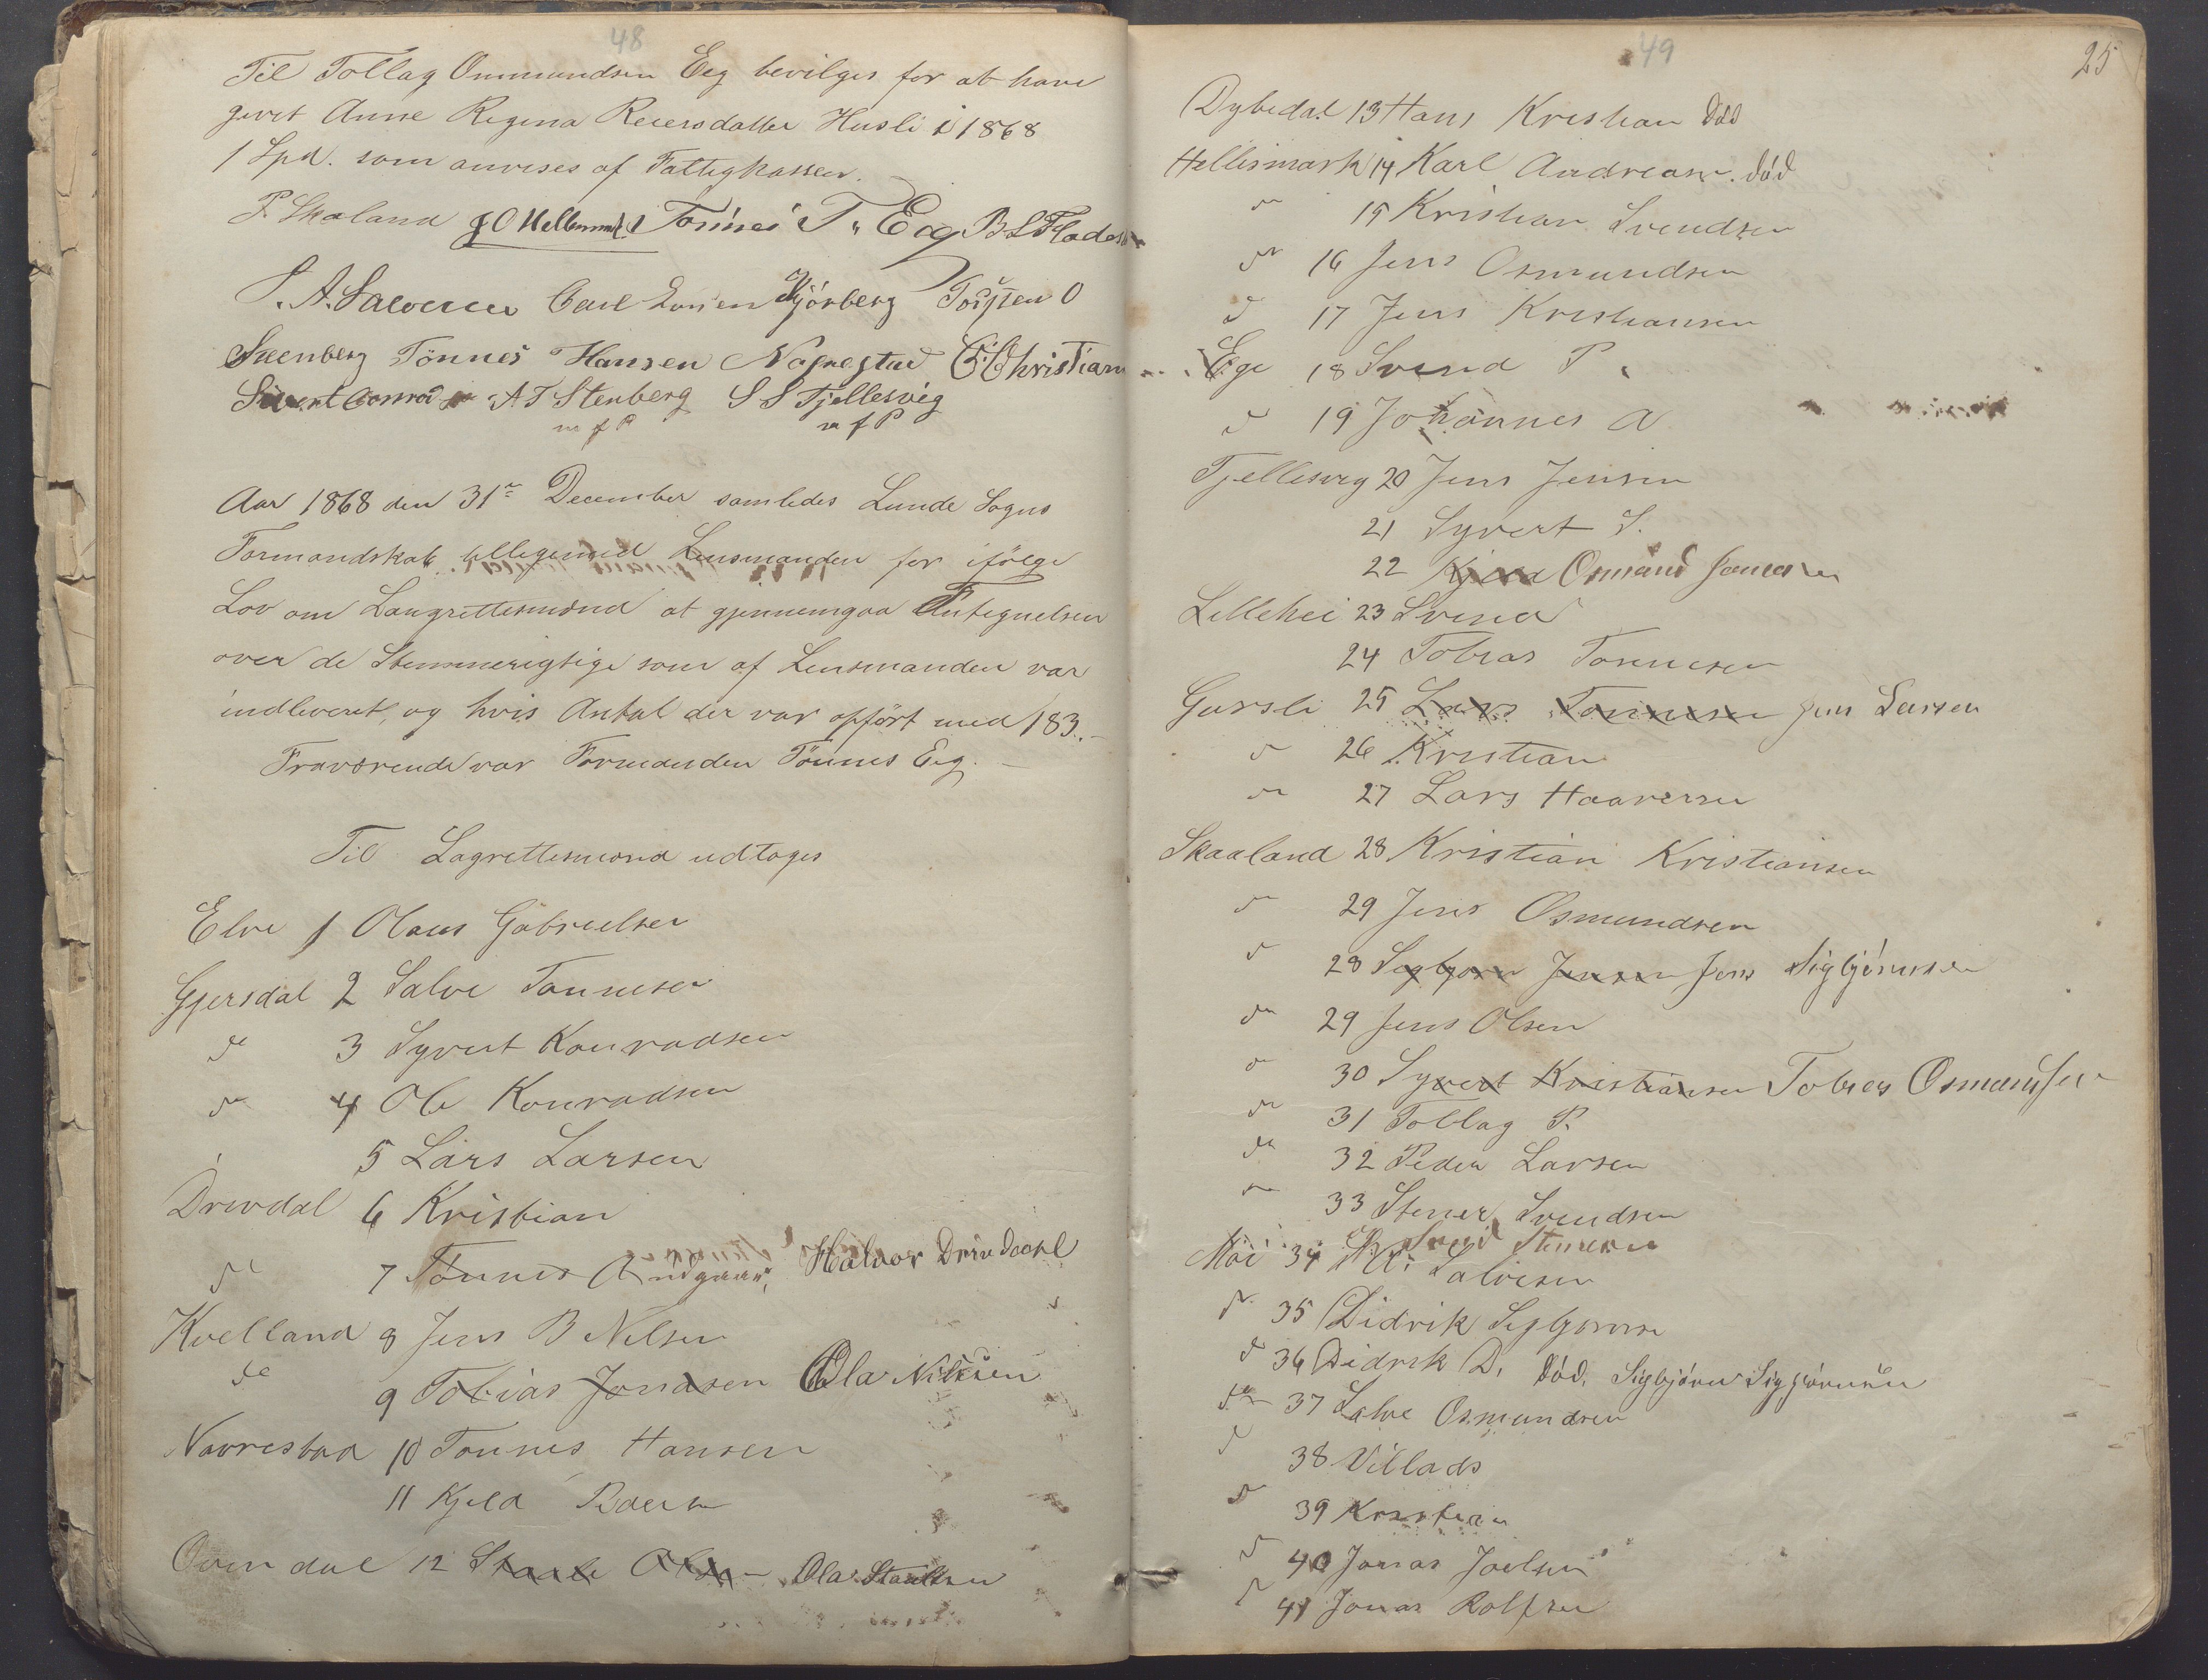 48
Til Tollag Ommundsen Eeg bevilges for at have
givet Anne Regina Reiersdatter Husli i 1868
1 Spd. som anvises af Fattigkassen.
P. Skaland J O Hellesmark Tönnes T. Eeg B L Flades
S. A. Salvesen Carl Larsen Kjörberg Torsten O
Steenberg Tönnes Hansen Nafrestad C. Christian
Sivert Conrodsen A T Stenberg S S Tjellesvig
m f P m f P
Aar 1868 den 31te December samledes Lunde Sogns
Formandskab tilligemed Lensmanden for ifölge
Lov om Laugrettesmænd at gjennemgaa Antegnelsen
over de Stemmerigtige som af Lensmanden var
indleveret, og hvis Antal der var opfört med 183.-
Fraværende var Formanden Tönnes Eeg. -
Til Lagrettesmænd udtoges
Elve 1 Olaus Gabrielsen
Gjersdal 2 Salve Tønnesen
do 3 Syvert Konradsen
do 4 Ole Konradsen
5 Lars Larsen
Drivdal 6 Kristian
do 7 Tönnes Audgaard, Halvor Drivdahl
Kvelland 8 Jens B Nilsen
do 9 Tobias Jonasen Ola Nilsen
Navrestad 10 Tonnes Hansen
11 Kjeld Pedersen
Ovendal 12 Staale Olsen - Ola Staalesen
49
25
Dybedal 13 Hans Kristian död
Hellesmark 14 Karl Andreas. död
do 15 Kristian Svendsen
do 16 Jens Osmundsen
do 17 Jens Kristiansen
Ege 18 Svend P.
do 19 Johannes A
Tjellesvig 20 Jens Jensen
21 Syvert S.
22 Kjeld Osmund Jonasen
Lillehei 23 Svend
24 Tobias Tonnesen
Gursli 25 Lars Tonnesen Jens Larsen
do 26 Kristian
do 27 Lars Haaversen
Skaaland 28 Kristian Kristiansen
do 29 Jens Osmundsen
do 28 Segbjorn Jensen Jens Sigbjörnsen
do 29 Jens Olsen
do 30 Syvert Kristiansen Tobias Osmundsen
do 31 Tollag P.
do 32 Peder Larsen
do 33 Stener Svendsen
Svend Stenersen
Moi 34 Salvesen
do 35 Didrik Segbjornsen
do 36 Didrik D. död. Sigbjörn Sigbjörnsen
do 37 Salve Osmundsen
do 38 Villads
do 39 Kristian
do 40 Jonas Joelsen
do 41 Jonas Rolfsen